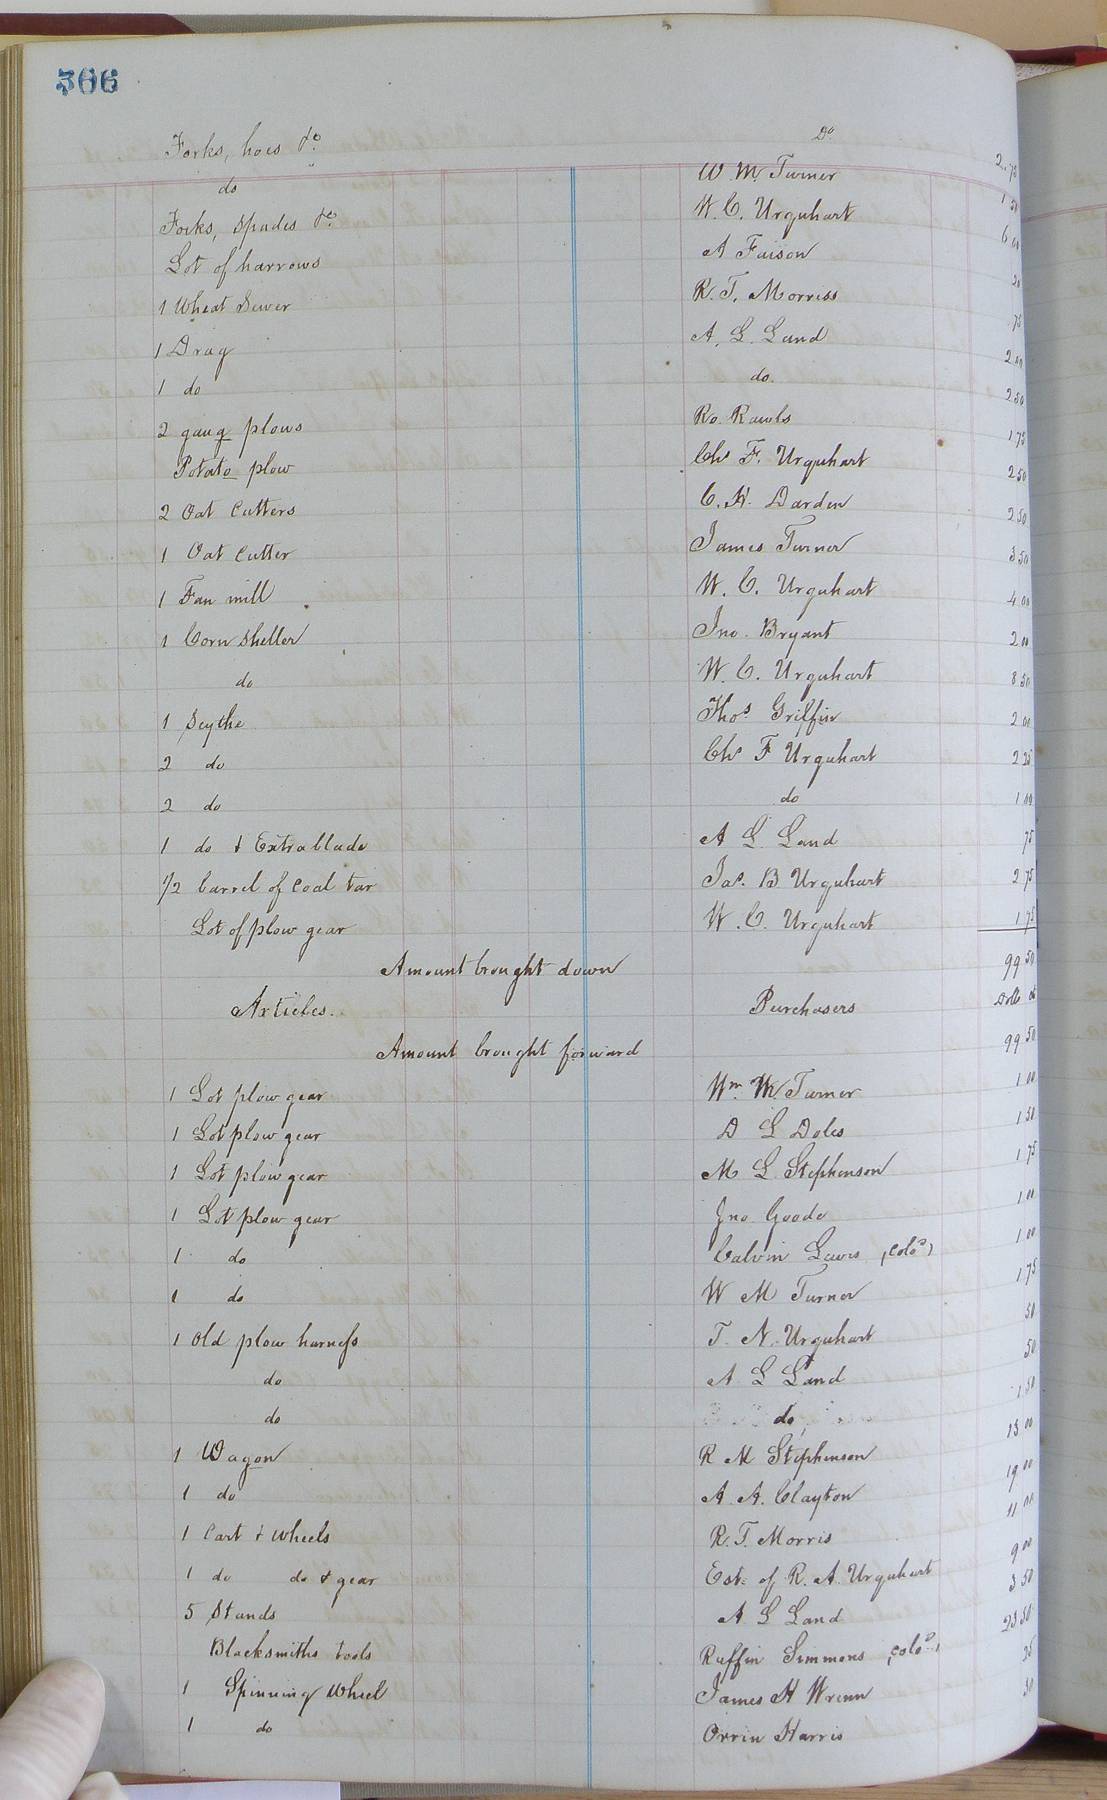 366
Forks, hoes &c. Do 2.75
do W. M. Turner 1 50
Forks, spades &c W. C. Urquhart 6 00
Lot of harrows A Faison 20
1 Wheat Sewer R. T. Morriss 75
1 Drag A. L. Land 2 00
1 do do. 2 50
2 gang plows Ro. Rawls 1 75
Potato plow Chs F. Urquhart 2 50
2 Oat Cutters C. H. Darden 2 50
1 Oat Cutter James Turner 3 50
1 Fan mill W. C. Urquhart 4 00
1 Corn Sheller Jno. Bryant 2 00
do W. C. Urquhart 8 50
1 Scythe Thos Griffin 2 00
2 do Chs F Urquhart 2 25
2 do do 1 00
1 do & Extra blade A L Land 75
1/2 barrel of Coal tar Jas. B Urquhart 2 75
Lot of plow gear W. C. Urquhart 1 75
Amount brought down 99 50
Articles. Purchasers Dolls cts
Amount brought forward 99 50
1 Lot plow gear Wm. M Turner 1 00
1 Lot plow gear D L Doles 1 50
1 Lot plow gear M L Stephenson 1 75
1 Lot plow gear Jno Goode 1 00
1 do Calvin Lewis (cold) 1 00
1 do W M Turner 1 75
1 Old plow harness T. N. Urquhart 50
do A L Land 50
do do 1 50
1 Wagon R M Stephenson 15 00
1 do A. A. Clayton 19 00
1 Cart & wheels R. T. Morris 11 00
1 do do & gear Est. of R. A. Urquhart 9 00
5 Stands A L Land 3 50
Blacksmiths tools Ruffin Simmons (cold) 23 50
1 Spinning Wheel James H Wrenn 25
1 do Orrin Harris 50